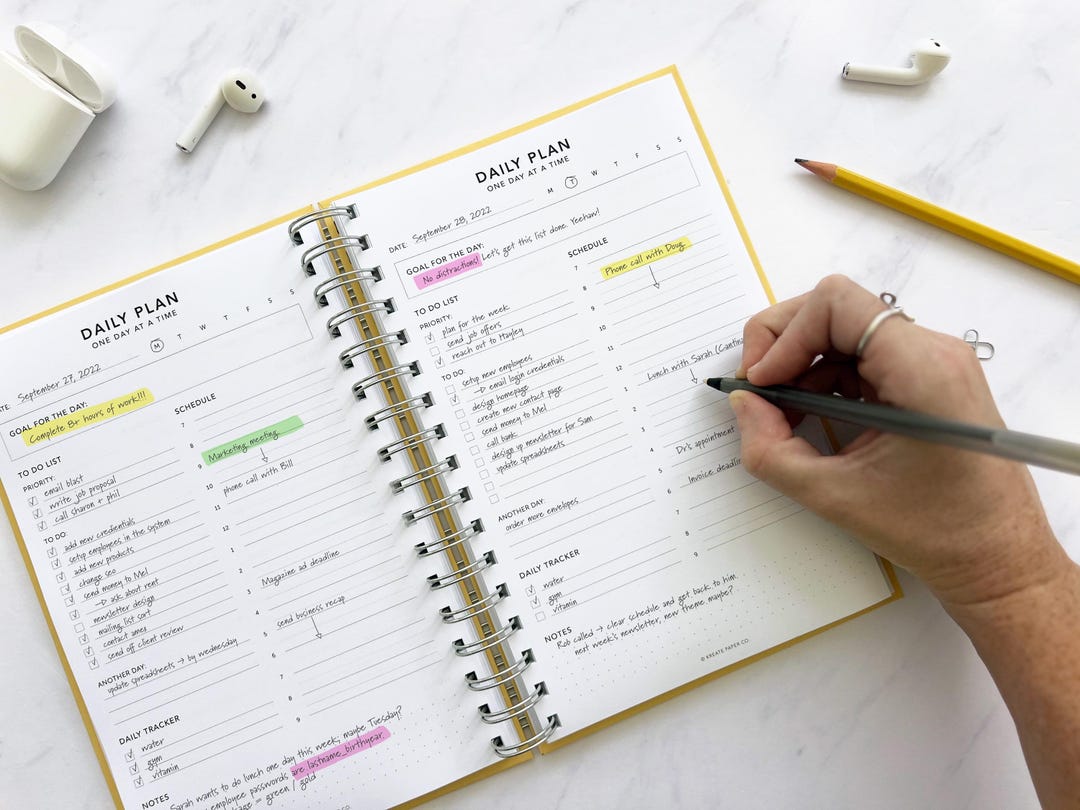 DAILY PLAN
ONE DAY AT A TIME
M T W T F S S
September 27, 2022
GOAL FOR THE DAY:
Complete 8+ hours of work!!!
TO DO LIST
PRIORITY:
email blast
write job proposal
call sharon + phil
TO DO:
add new credentials
setup employees in the system
add new products
change seo
send money to Mel
→ ask about rent
newsletter design
mailing list sort
contact amex
send off client review
ANOTHER DAY:
update spreadsheets → by wednesday
DAILY TRACKER
water
gym
vitamin
NOTES
Sarah wants to do lunch one day this week; maybe Tuesday?
employee passwords are lastname_birthyear
= green / gold
SCHEDULE
7
8
9 Marketing meeting
10 phone call with Bill
11
12
1
2
3 Magazine ad deadline
4
5 send business recap
6
7
8
9
DAILY PLAN
ONE DAY AT A TIME
M T W T F S S
DATE: September 28, 2022
GOAL FOR THE DAY:
No distractions! Let's get this list done. Yeehaw!
TO DO LIST
PRIORITY:
plan for the week
send job offers
reach out to Hayley
TO DO:
setup new employees
→ email login credentials
design homepage
create new contact page
send money to Mel
call bank
design up newsletter for Sam
update spreadsheets
ANOTHER DAY:
order more envelopes
DAILY TRACKER
water
gym
vitamin
NOTES
Rob called → clear schedule and get back to him
next week's newsletter, new theme maybe?
SCHEDULE
7 Phone call with Doug
8
9
10
11
12 Lunch with Sarah
1
2
3
4 Dr's appointment
5 Invoice
6
7
8
9
© KREATE PAPER CO.